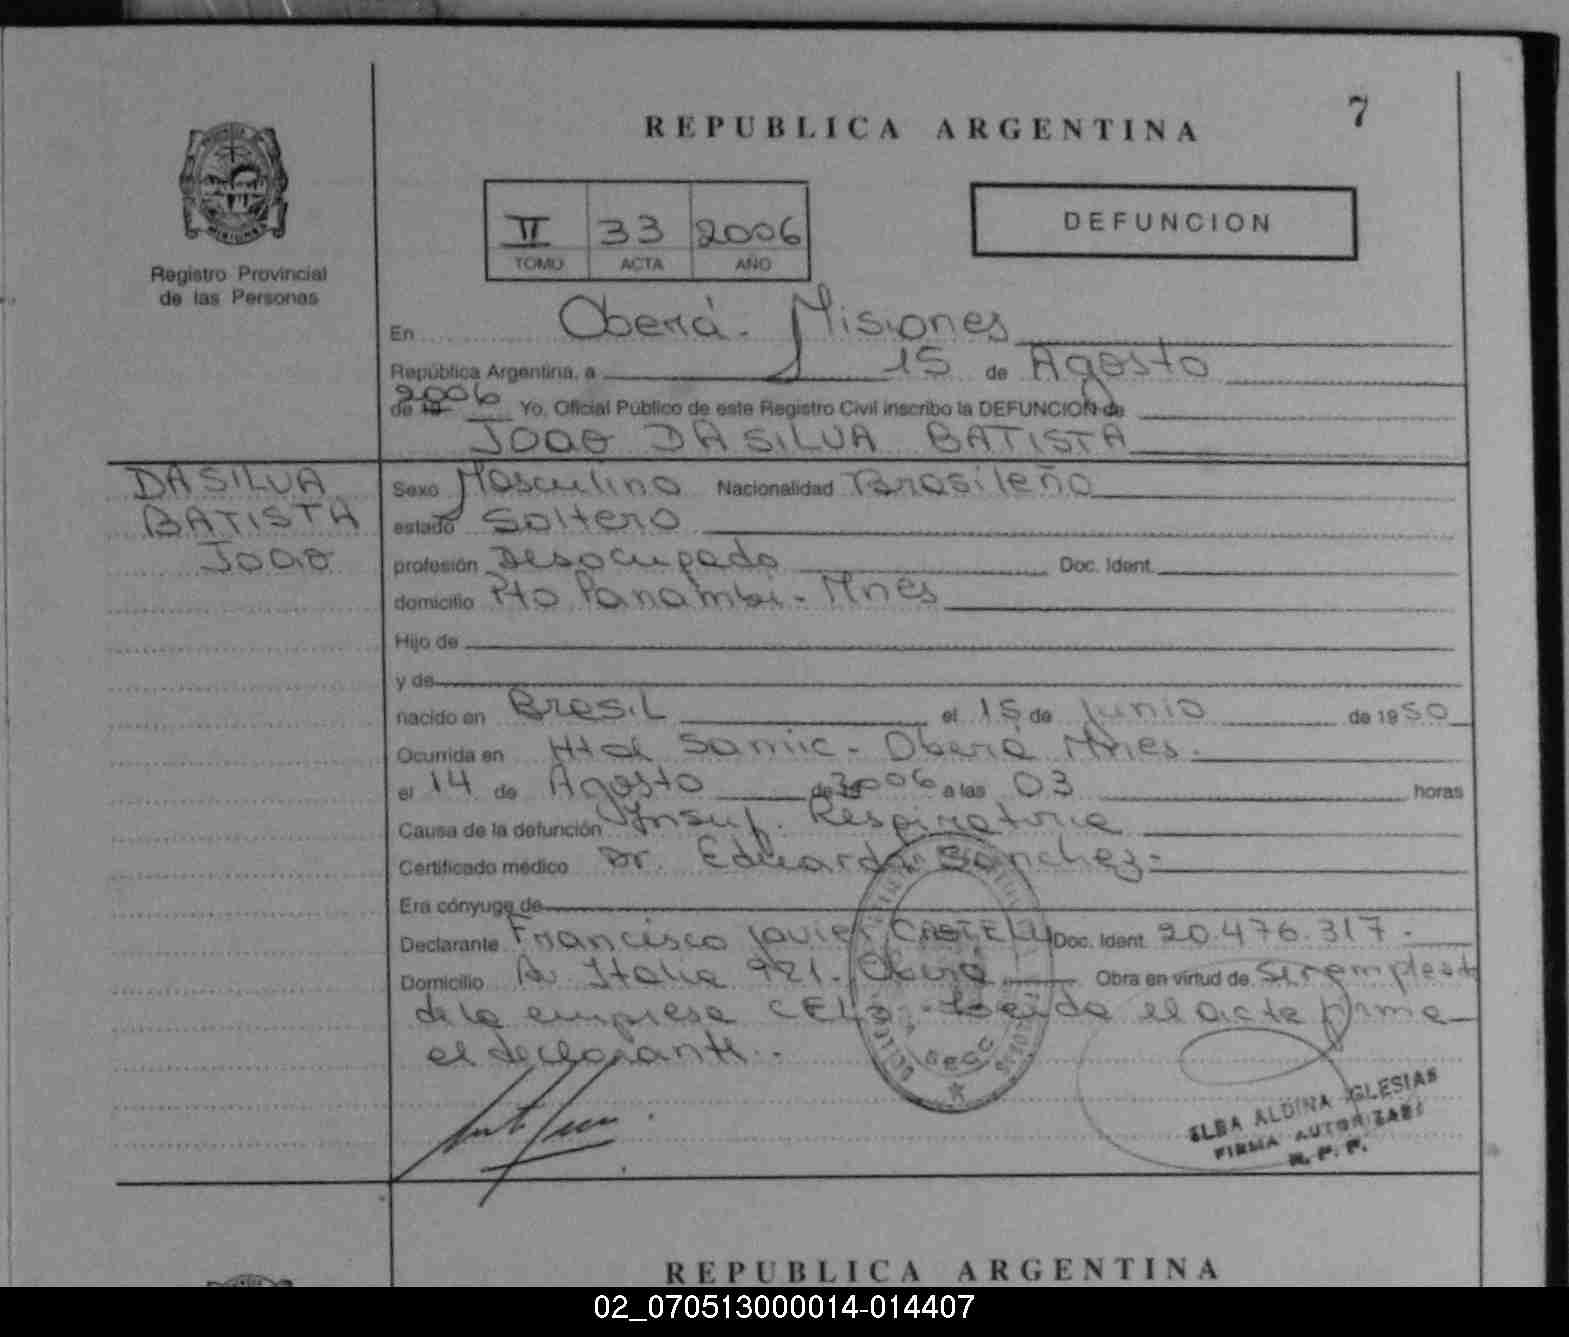 7
REPUBLICA ARGENTINA
Registro Provincial
de las Personas
II 33 2006
TOMO ACTA AÑO
DEFUNCION
En Oberá - Misiones
República Argentina, a 15 de Agosto
de 19 2006 Yo, Oficial Público de este Registro Civil inscribo la DEFUNCION de
JOAO DA SILVA BATISTA
DA SILVA
BATISTA
JOAO
Sexo Masculino Nacionalidad Brasileño
estado Soltero
profesión Desocupado Doc. Ident.
domicilio Pto Panambi - Mnes
Hijo de
y de
nacido en Brasil el 15 de Junio de 1950
Ocurrida en Htal Samic - Oberá Mnes.
el 14 de Agosto de 2006 a las 03 horas
Causa de la defunción Insuf. Respiratoria
Certificado médico Dr. Eduardo Sanchez -
Era cónyuge de
Declarante Francisco Javier CASTELY Doc. Ident. 20.476.317.
Domicilio Av Italia 921 - Oberá Obra en virtud de ser empleado
de la empresa - Leida el acta firma
el declarante.
ELBA ALDINA IGLESIAS
FIRMA AUTORIZADA
R. P. P.
REPUBLICA ARGENTINA
02_070513000014-014407